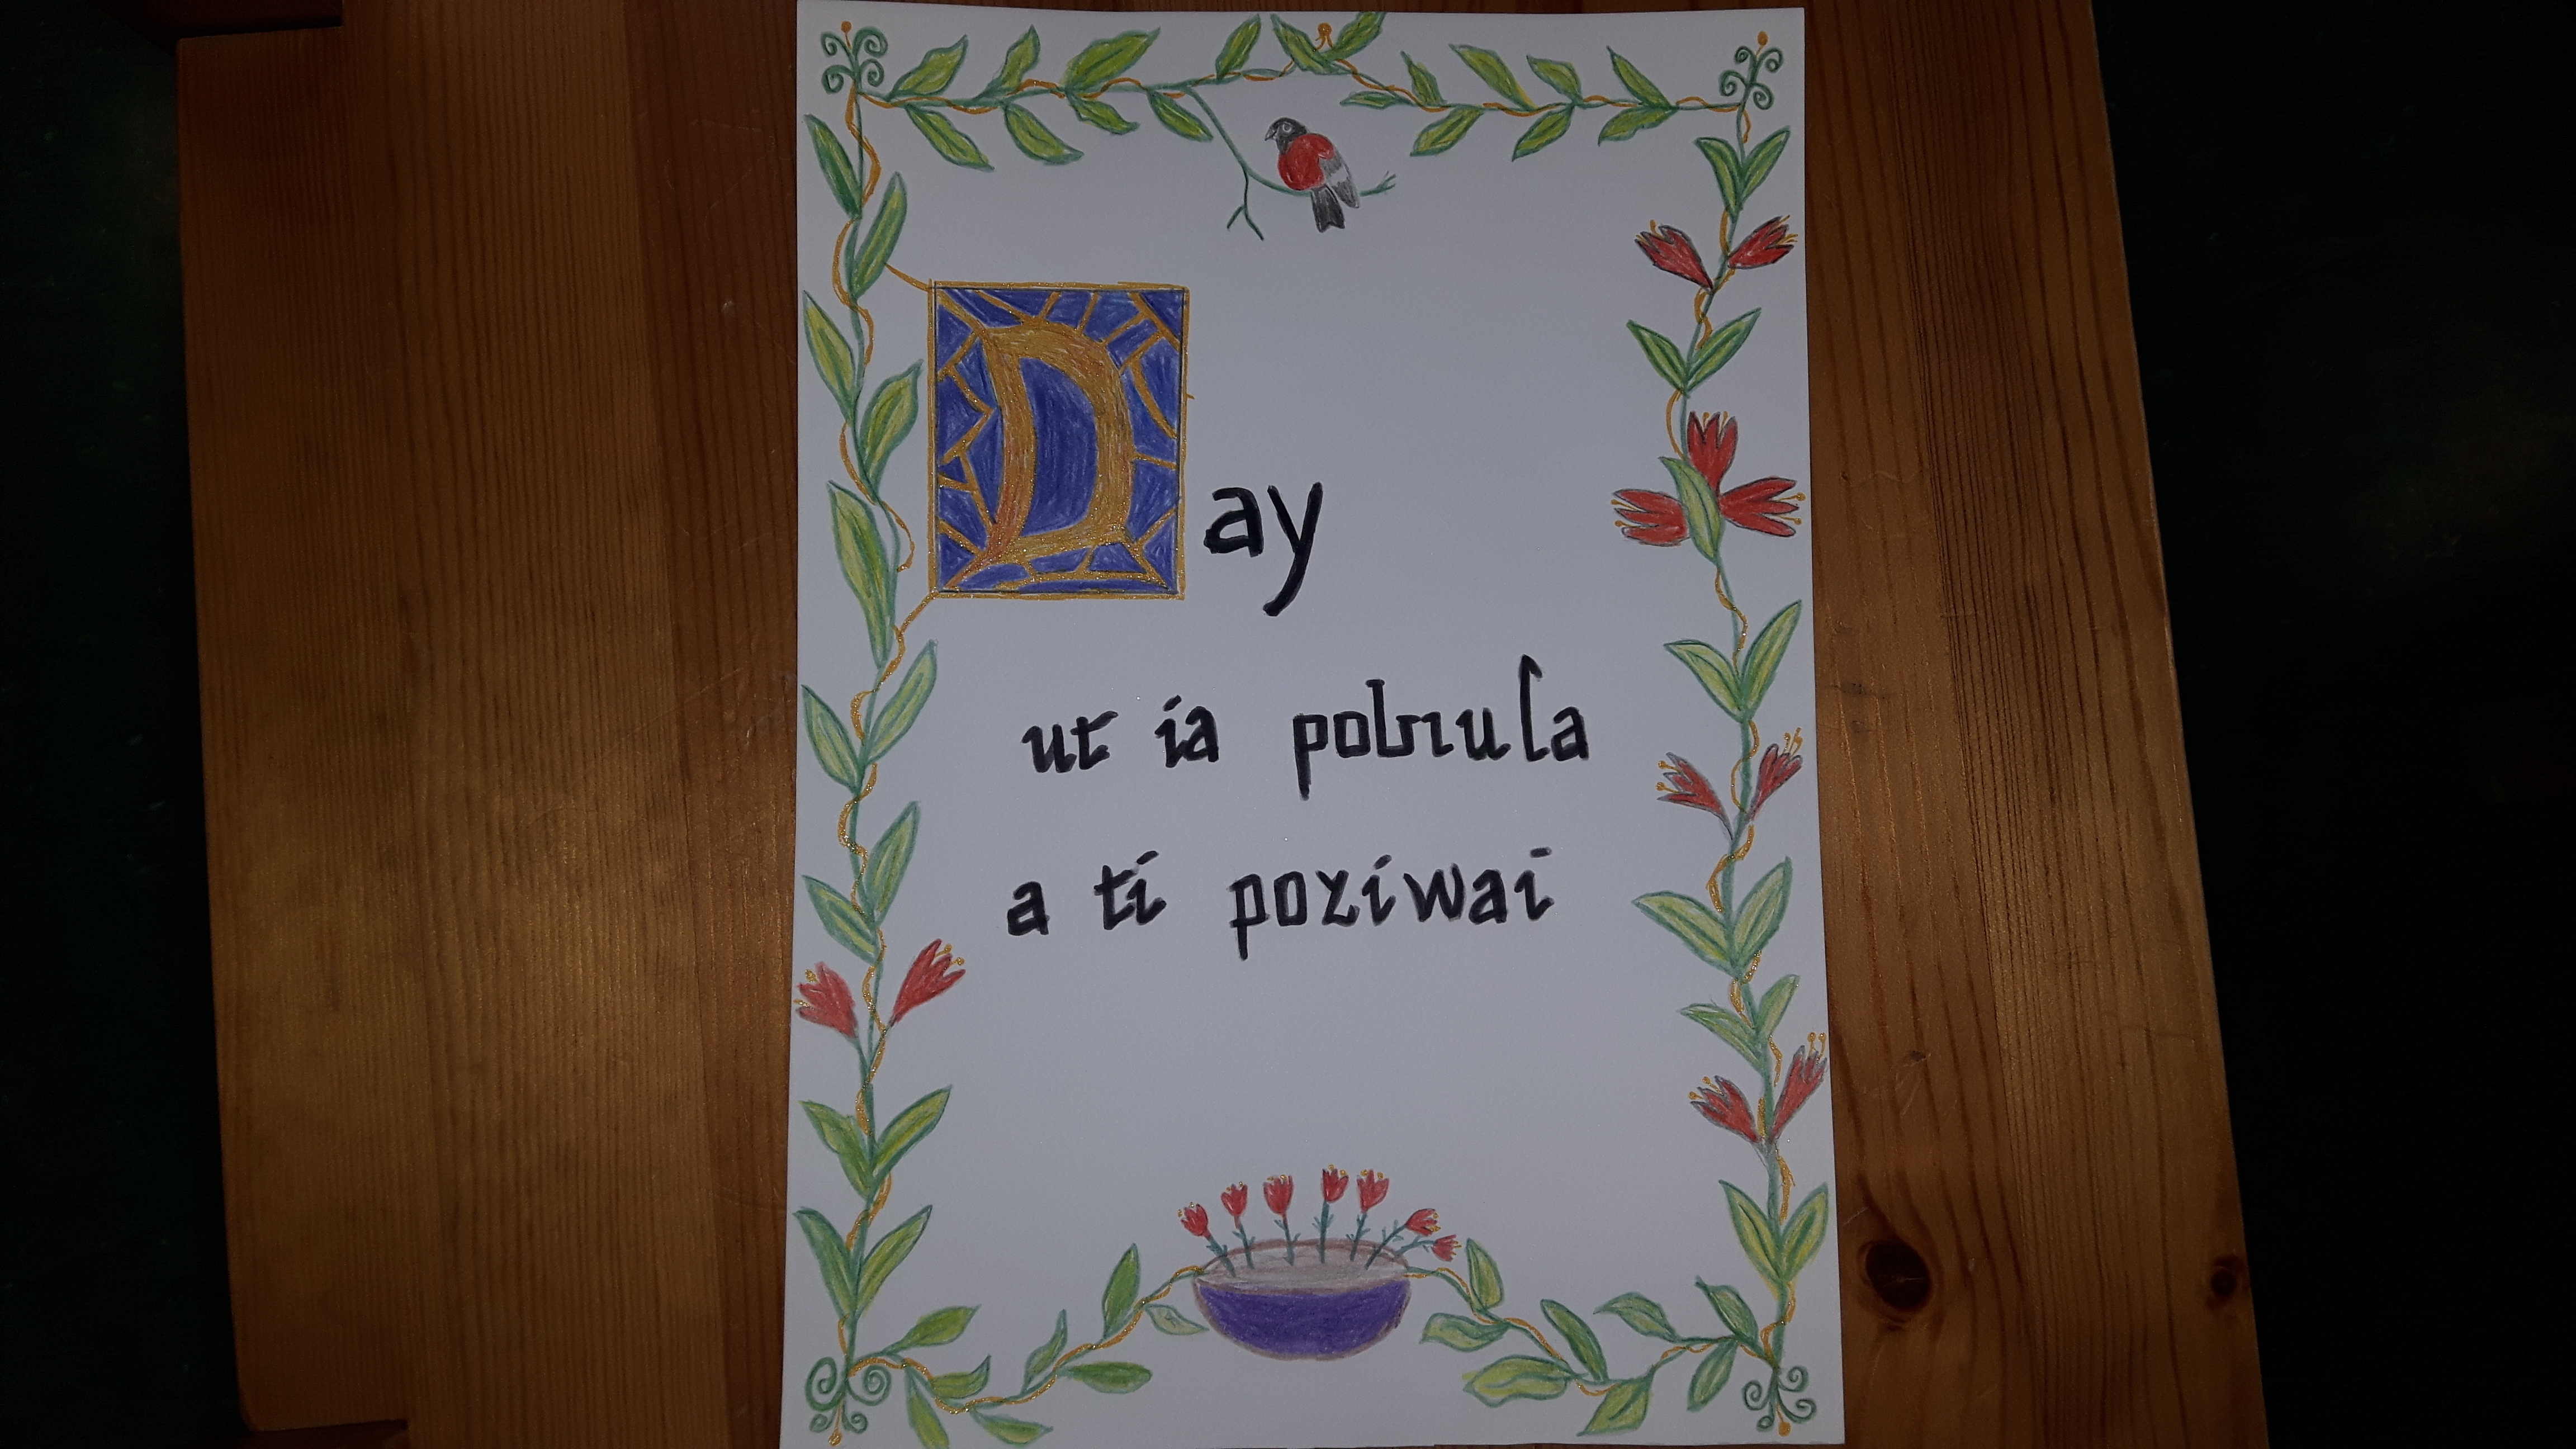 Day
ut ia pobrula
a ti poziwai